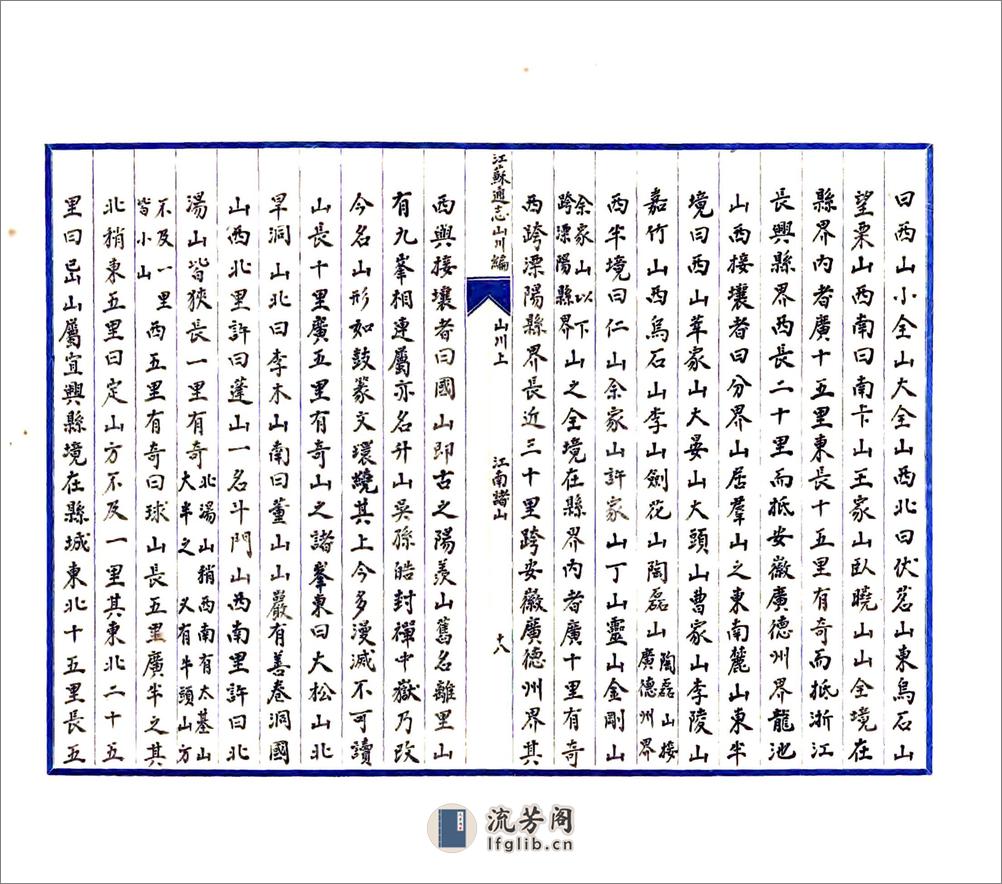 曰西山小全山大全山西北曰伏山東烏石山
望栗山西南曰南卡山王家山臥曉山山全境在
縣界内者廣十五里東長十五里有奇而抵浙江
長興縣界西長二十里而抵安徽廣德州界龍池
山西接壤者曰分界山居羣山之東南麓山東半
境曰西山革家山大晏山大頭山曹家山李陵山
嘉竹山西烏石山李山劍花山陶磊山陶磊山接廣德州界
西半境曰仁山余家山許家山丁山靈山金剛山
余家山以下跨溧陽縣界山之全境在縣界内者廣十里有奇
西跨溧陽縣界長近三十里跨安徽廣德州界其
江蘇通志山川編
山川上
江南諸山
十八
西與接壤者曰國山即古之陽羨山舊名離里山
有九峯相連屬亦名升山吳孫皓封禪中嶽乃改
今名山形如鼓篆文環繞其上今多漫滅不可讀
山長十里廣五里有奇山之諸峯東曰大松山北
旱洞山北曰李木山南曰董山山巖有善卷洞國
山西北里許曰蓬山一名斗門山西南里許曰北
湯山皆狹長一里有奇北湯山稍西南有太墓山大半之又有牛頭山方
不及一里皆小山西五里有奇曰球山長五里廣半之其
北稍東五里曰定山方不及一里其東北二十五
里曰山屬宜興縣境在縣城東北十五里長五
流芳阁
lfglib.cn